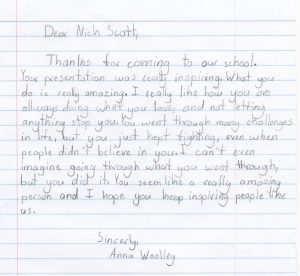 Dear Nich Scott,
Thanks for coming to our school.
Your presentation was really inspiring. What you
do is really amazing. I really like how you are
allways doing what you love, and not letting
anything stop you. You went through many challenges
in life, but you just kept fighting, even when
people didn't believe in you. I can't even
imagine going through what you went through,
but you did it. You seem like a really amazing
person and I hope you keep inspiring people like
us.
Sincerly,
Anna Woolley